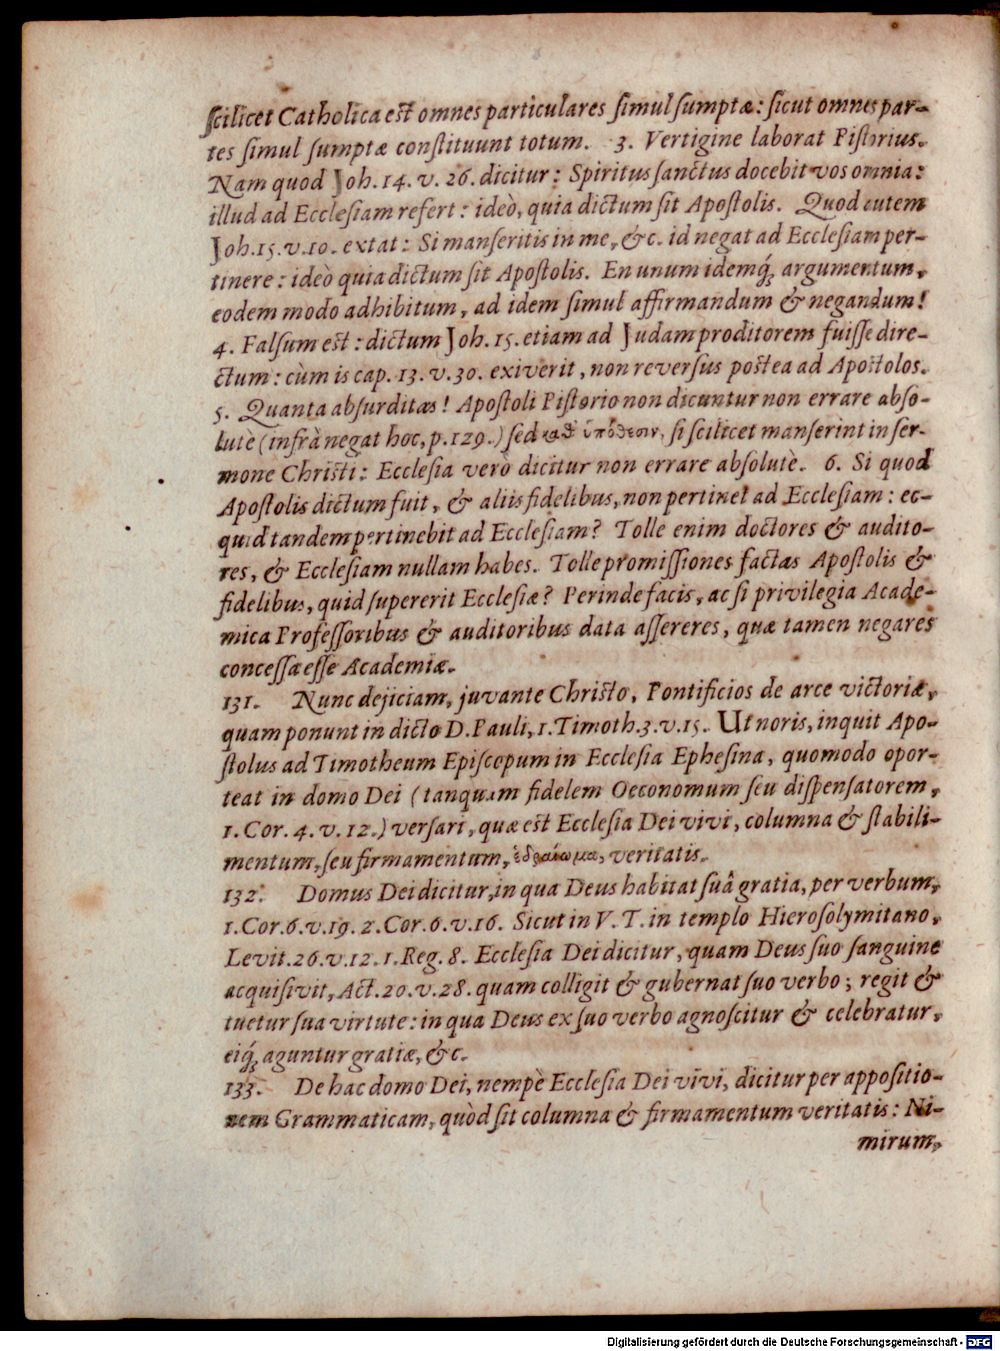 ſcilicet Catholica eſt omnes particulares ſimul ſumptæ: ſicut omnes par-
tes ſimul ſumptæ conſtituunt totum. 3. Vertigine laborat Piſtorius.
Nam quod Joh. 14. v. 26. dicitur: Spiritus ſanctus docebit vos omnia:
illud ad Eccleſiam refert: ideò, quia dictum ſit Apoſtolis. Quod autem
Joh. 15. v. 10. extat: Si manſeritis in me, &c. id negat ad Eccleſiam per-
tinere: ideò quia dictum ſit Apoſtolis. En unum idemq́ꝫ argumentum,
eodem modo adhibitum, ad idem ſimul affirmandum & negandum!
4. Falſum eſt: dictum Joh. 15. etiam ad Judam proditorem fuiſſe dire-
ctum: cùm is cap. 13. v. 30. exiverit, non reverſus poſtea ad Apoſtolos.
5. Quanta abſurditas! Apoſtoli Piſtorio non dicuntur non errare abſo-
lutè (infrà negat hoc, p. 129.) ſed καθ' ὑπόθεσιν, ſi ſcilicet manſerint in ſer-
mone Chriſti: Eccleſia verò dicitur non errare abſolutè. 6. Si quod
Apoſtolis dictum fuit, & aliis fidelibus, non pertinet ad Eccleſiam: ec-
quid tandem pertinebit ad Eccleſiam? Tolle enim doctores & audito-
res, & Eccleſiam nullam habes. Tolle promiſſiones factas Apoſtolis &
fidelibus, quid ſupererit Eccleſiæ? Perinde facis, ac ſi privilegia Acade-
mica Profeſſoribus & auditoribus data aſſereres, quæ tamen negares
conceſſa eſſe Academiæ.
131. Nunc dejiciam, juvante Chriſto, Pontificios de arce victoriæ,
quam ponunt in dicto D. Pauli, 1. Timoth. 3. v. 15. Ut noris, inquit Apo-
ſtolus ad Timotheum Epiſcopum in Eccleſia Epheſina, quomodo opor-
teat in domo Dei (tanquam fidelem Oeconomum ſeu diſpenſatorem,
1. Cor. 4. v. 12.) verſari, quæ eſt Eccleſia Dei vivi, columna & ſtabili-
mentum, ſeu firmamentum, ἑδραίωμα, veritatis.
132. Domus Dei dicitur, in qua Deus habitat ſuâ gratia, per verbum,
1. Cor. 6. v. 19. 2. Cor. 6. v. 16. Sicut in V. T. in templo Hieroſolymitano,
Levit. 26. v. 12. 1. Reg. 8. Eccleſia Dei dicitur, quam Deus ſuo ſanguine
acquiſivit, Act. 20. v. 28. quam colligit & gubernat ſuo verbo; regit &
tuetur ſua virtute: in qua Deus ex ſuo verbo agnoſcitur & celebratur,
eiq́ꝫ aguntur gratiæ, &c.
133. De hac domo Dei, nempè Eccleſia Dei vivi, dicitur per appoſitio-
nem Grammaticam, quòd ſit columna & firmamentum veritatis: Ni-
mirum,
Digitalisierung gefördert durch die Deutsche Forschungsgemeinschaft - DFG